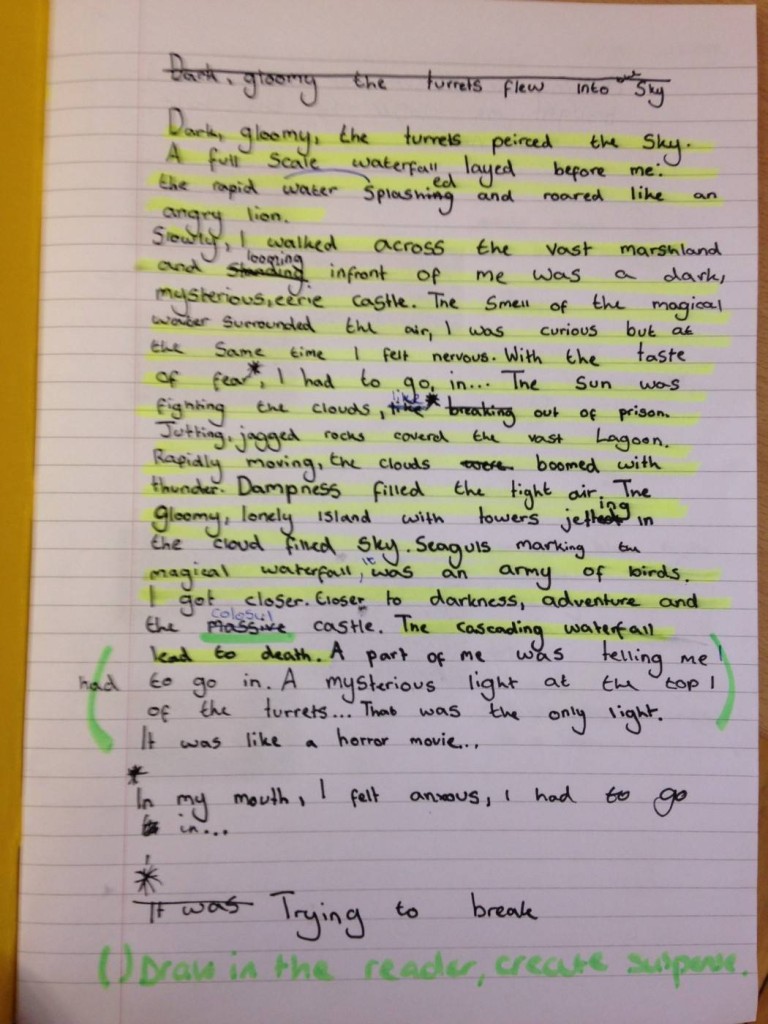 Dark, gloomy the turrets flew into the Sky
Dark, gloomy, the turrets peirced the Sky.
A full Scale waterfall layed before me:
the rapid water Splashing ed and roared like an
angry lion.
Slowly, I walked across the vast marshland
looming
and standing infront of me was a dark,
mysterious, eerie castle. The smell of the magical
water surrounded the air, I was curious but at
the Same time I felt nervous. With the taste
of fear*, I had to go, in... The Sun was
like
fighting the clouds, like * breaking out of prison.
Jutting, jagged rocks coverd the vast Lagoon.
Rapidly moving, the clouds were boomed with
thunder. Dampness filled the tight air. The
ing
gloomy, lonely island with towers jetted in
the cloud filled Sky. Seaguls marking the
it
magical waterfall, was an army of birds.
I got closer. Closer to darkness, adventure and
colosul
the massive castle. The cascading waterfall
lead to death. A part of me was telling me I
had to go in. A mysterious light at the top
of the turrets... That was the only light.
It was like a horror movie...
*
In my mouth, I felt anxous, I had to go
to in...
*
It was Trying to break
() Draw in the reader, create suspense.